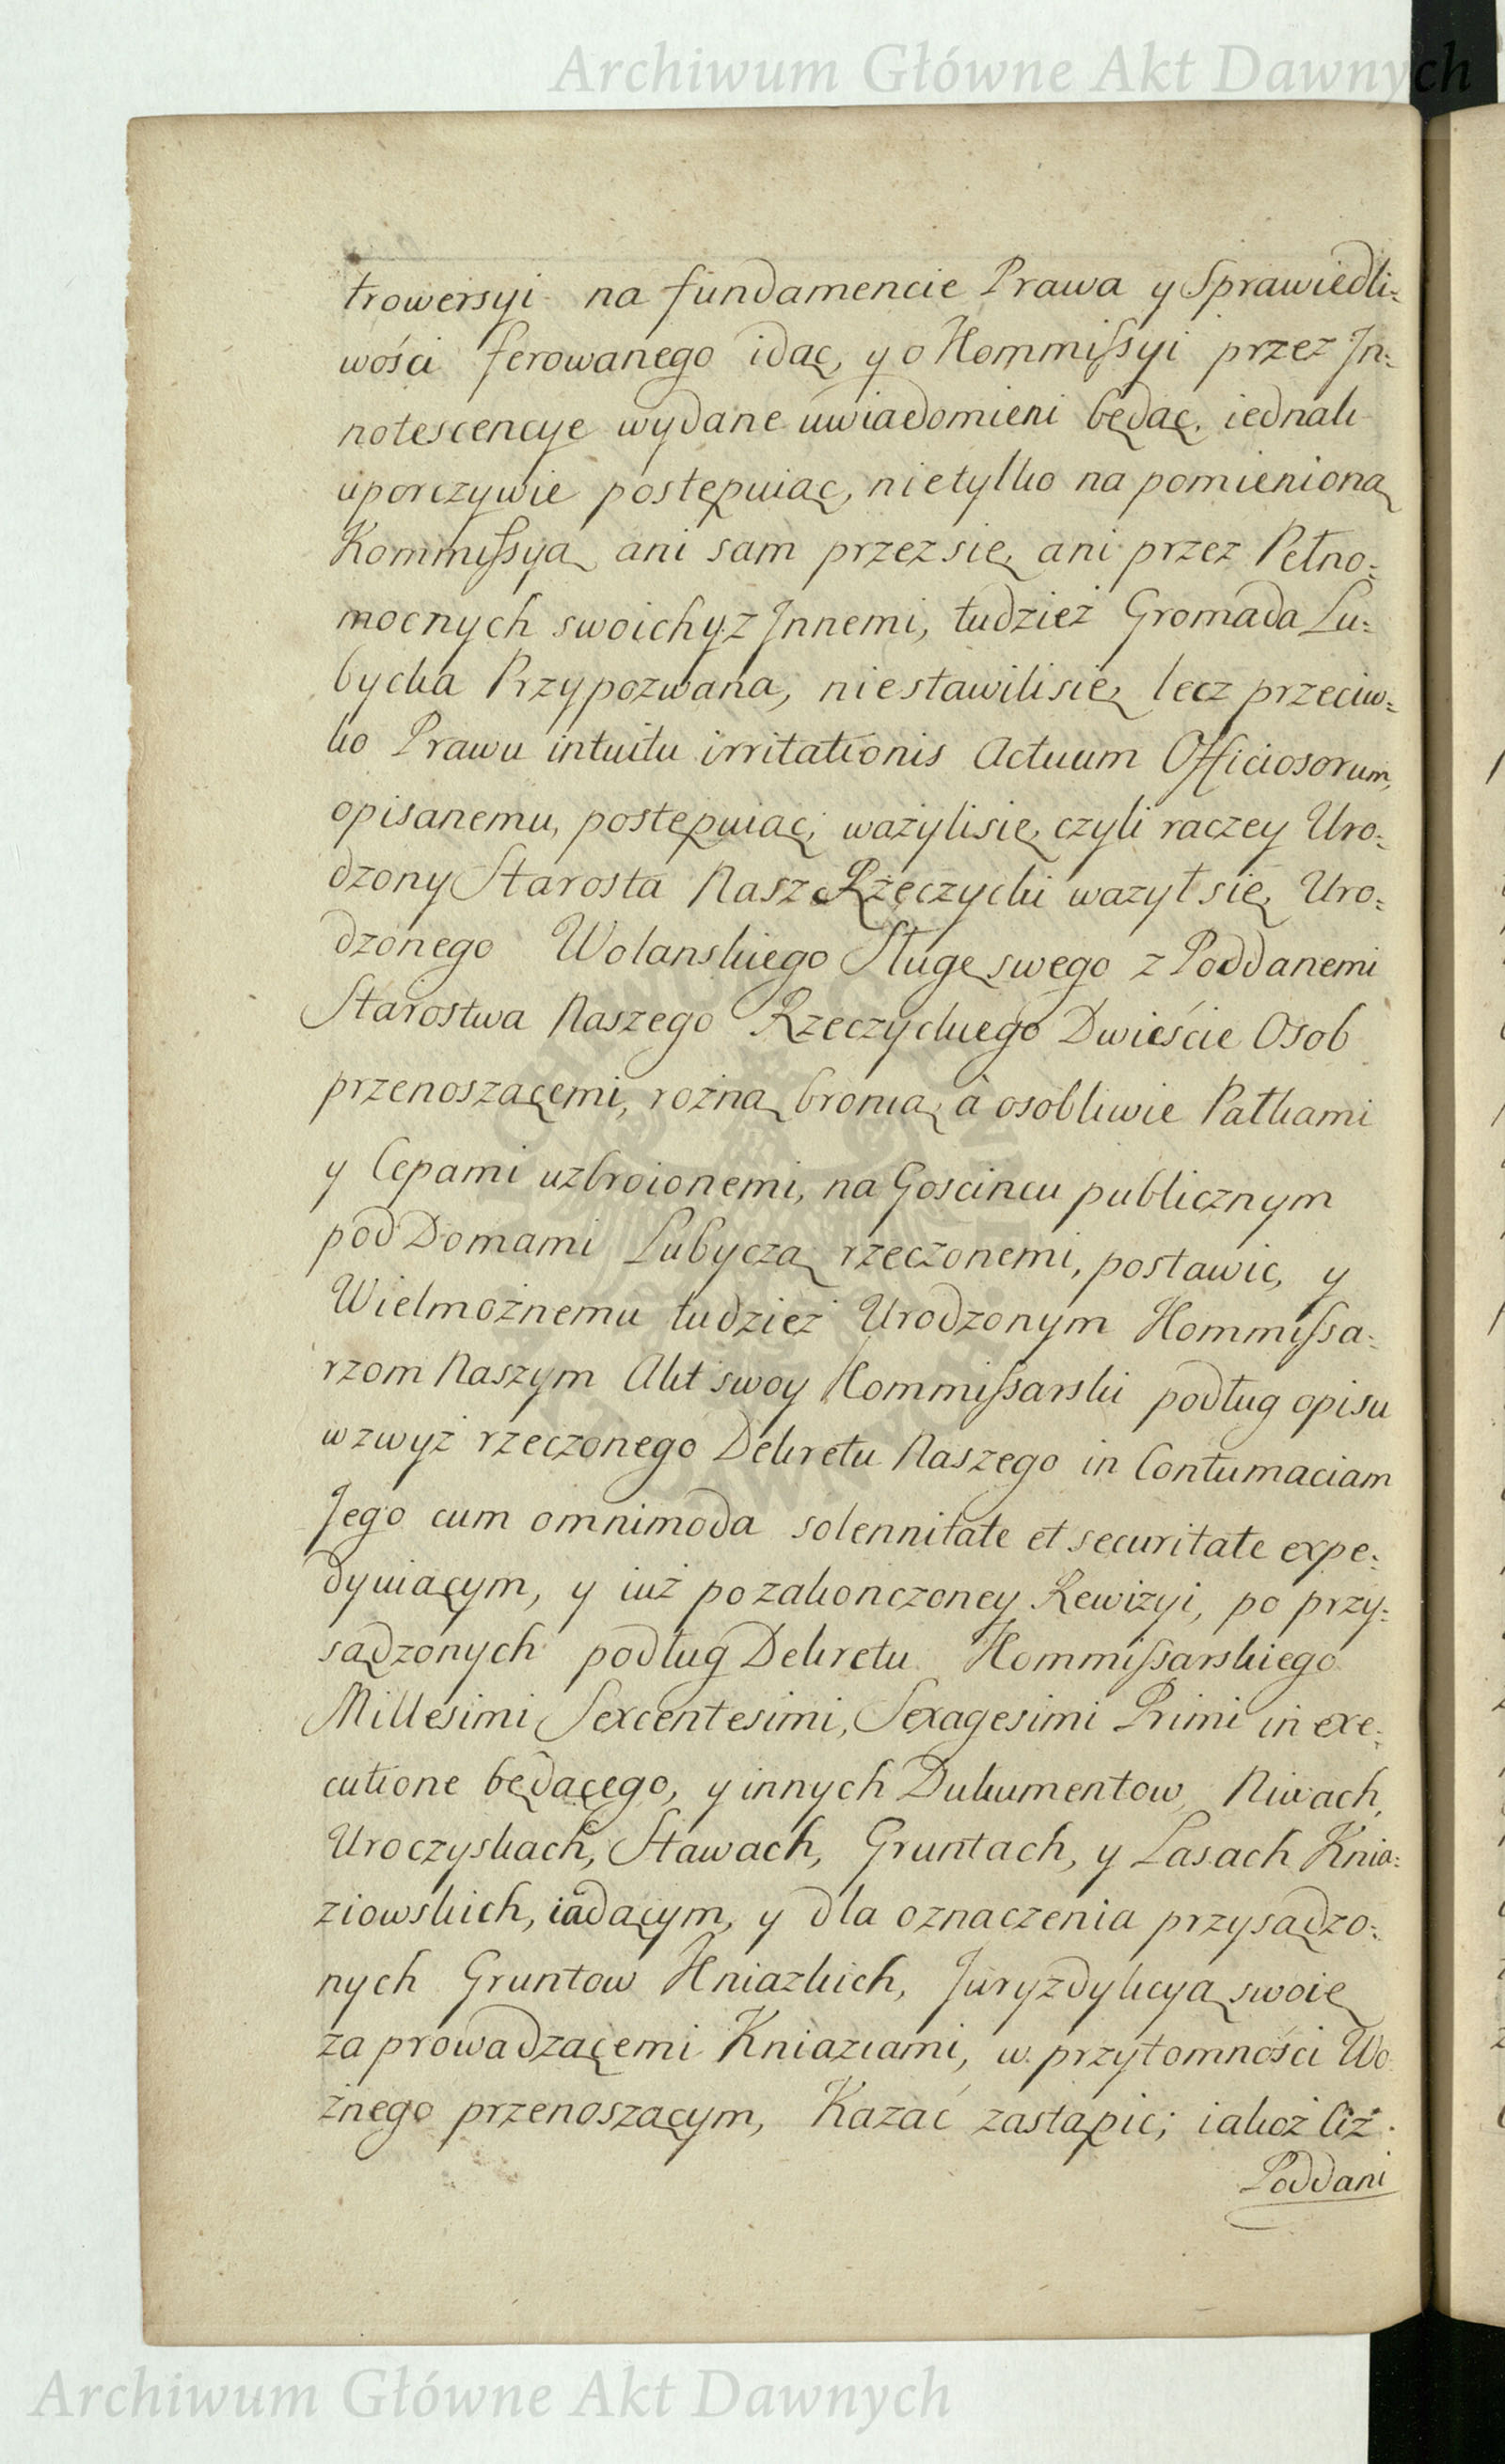 Archiwum Główne Akt Dawnych
trowersyi na fundamencie Prawa y Sprawiedli:
wości ferowanego idąc, y o Kommissyi przez In:
notescencye wydane uwiadomieni będąc, iednak
uporczywie postępuiąc, nietylko na pomienioną
Kommissyą ani sam przez się, ani przez Pełno:
mocnych swoich y z Innemi, tudzież Gromada Lu:
bycka Przypozwana, niestawilisię, lecz przeciw:
ko Prawu intuitu irritationis Actuum Officiosorum,
opisanemu, postępuiąc, ważylisię, czyli raczey Uro:
dzony Starosta Nasz Rzeczycki ważył się, Uro:
dzonego Wolanskiego Sługę swego z Poddanemi
Starostwa Naszego Rzeczyckiego Dwieście Osob
przenoszącemi, rożną bronią, à osobliwie Pałkami
y Cepami uzbroionemi, na Goscincu publicznym
pod Domami Lubyczą rzeczonemi, postawic, y
Wielmożnemu tudzież Urodzonym Kommissa:
rzom Naszym Akt swoy Kommissarski podług opisu
wzwyż rzeczonego Dekretu Naszego in Contumaciam
Jego cum omnimoda solennitate et securitate expe:
dyuiącym, y iuż po zakonczoney Rewizyi, po przy:
sądzonych podług Dekretu Kommissarskiego
Millesimi Sexcentesimi, Sexagesimi Primi in exe:
cutione będącego, y innych Dukumentow, Niwach,
Uroczyskach, Stawach, Gruntach, y Lasach Knia:
ziowskich, iadącym, y dla oznaczenia przysądzo:
nych Gruntow Kniazkich, Juryzdykcyą swoię
za prowadzącemi Kniaziami, w przytomności Wo
żnego przenoszącym, Kazać zastąpic; iakoż Ciż
Poddani
Archiwum Główne Akt Dawnych